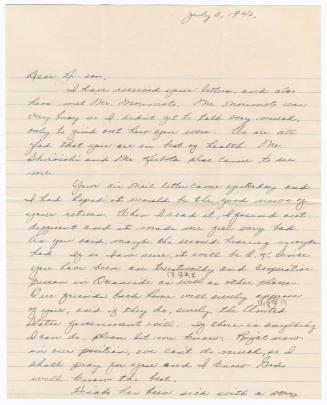 July 3, 1942.
Dear Hi-san,
I have received your letters, and also
have met Mr. Morimoto. Mr. Morimoto was
very busy so I didn't get to talk very much,
only to find out how you were. We are all
glad that you are in best of health. Mr.
and Mr. Kubota also came to see
me.
Your air mail letter came yesterday and
I had hoped it would be the good news of
your return. When I read it, I found out
different and it made me feel very bad.
As you said, maybe the second hearing maybe
had. If so I am sure, it will be O.K. Since
you have been an trustworthy and cooperative
person in as well as other places.
Our friends back home will surely approve
of you, and if they do, surely, the United
States government will. If there is anything
I can do, please let me know. Right now
in our position, we can't do much, so I
shall pray for you and I know God
will know the best.
has been sick with a very